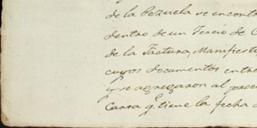 de la Pezuela se encontr
dentro de un Tercio de C
de la Factura, Manifiesto
cuyos documentos entre
q.e se agregaron al proce
Causa q.e tiene la fecha d